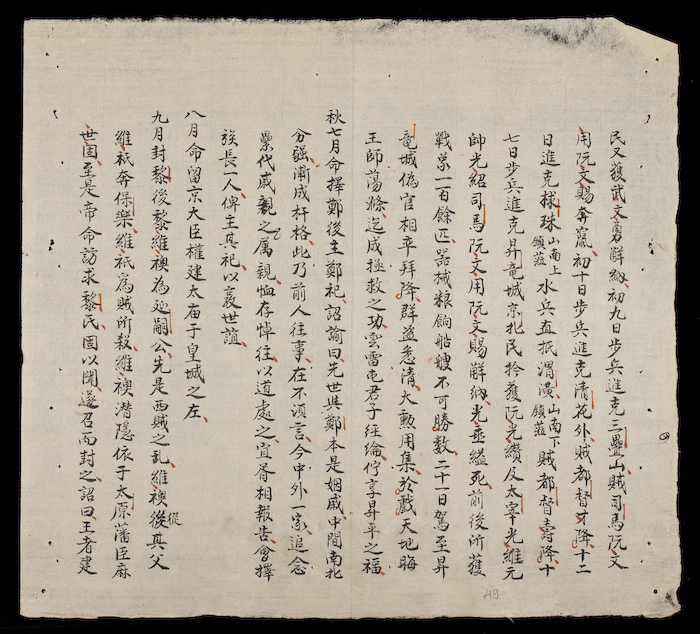 民又獲武文勇觧納初九日步兵進克三疊山賊司馬阮文
用阮文賜奔竄初十日步兵進克清花外賊都督才降十二
日進克捄珠山南上鎮蒞水兵直抵渭潢山南下鎮蒞賊都督壽降十
七日步兵進克昇竜城京北民拎獲阮光纘及太宰光維元
帥光紹司馬阮文用阮文賜觧納光垂縊死前後所獲
戰象一百餘匹器械粮餉船艘不可勝数二十一日駕至昇
竜城偽官相率拜降群盗悉清大勲用集於戲天地晦
王師蕩滌迄成拯救之功雲雷屯君子經綸佇享昇平之福
秋七月命擇鄭後主鄭祀詔諭曰先世與鄭本是姻戚中間南北
分疆漸成扞格此乃前人往事在不湏言今中外一家追念
纍代戚親之属親恤存悼往以道處之宜胥相報告會擇
族長一人俾主其祀以裒世誼
八月命留京大臣權建太庙于皇城之左
九月封黎後黎維禝為延嗣公先是西賊之乱維禝從其父
維祗奔保樂維祗為賊所殺維禝潜隱依于太原藩臣麻
世固至是帝命訪求黎氏固以聞遂召而封之詔曰王者建
49